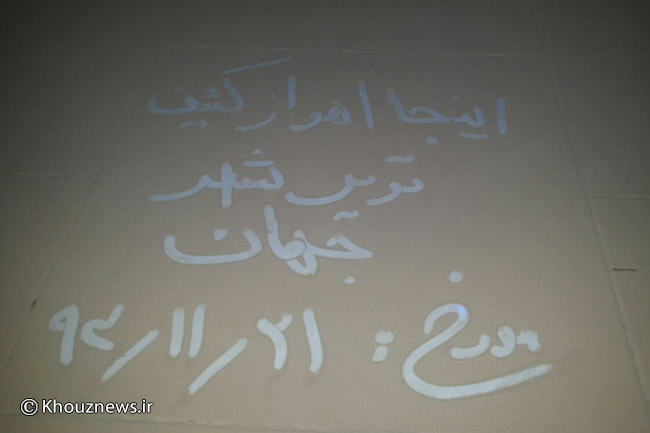 اینجا اهواز کثیف
ترین شهر
جهان
مورخ: ۹۳/۱۱/۲۱
© Khouznews.ir